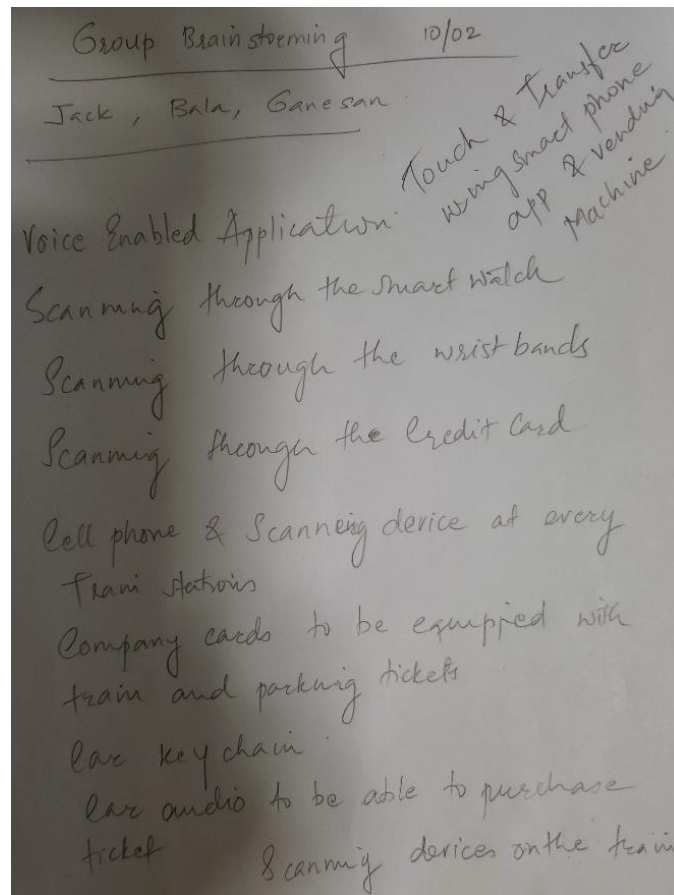 Group Brainstorming 10/02
Jack, Bala, Ganesan
Touch & Transfer
using smart phone
app & vending
Machine
Voice Enabled Application
Scanning through the smart watch
Scanning through the wrist bands
Scanning through the Credit Card
Cell phone & Scanneing device at every
Train stations
Company cards to be equippied with
train and parking tickets
Car key chain
Car audio to be able to purchase
ticket
Scanning devices on the train